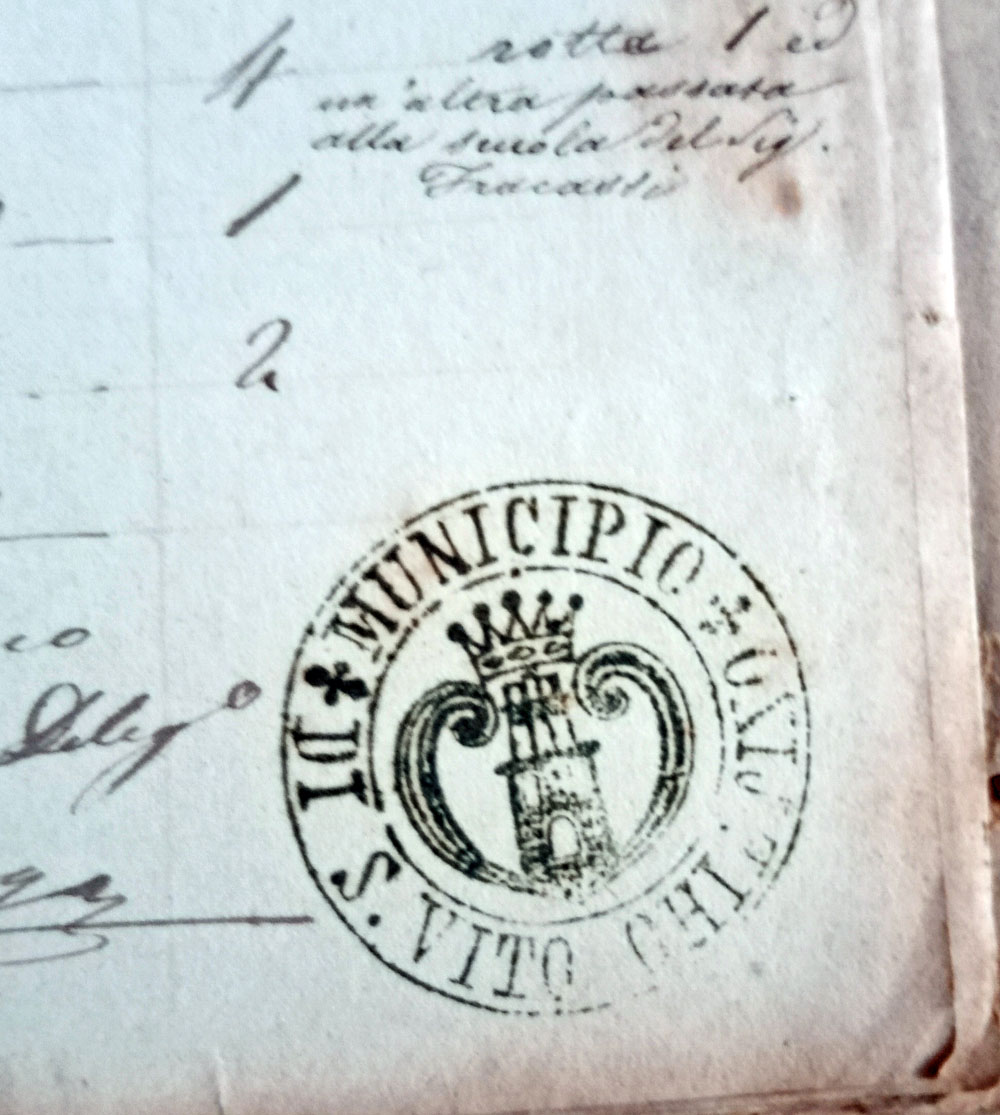 4 rotta 1 ed
un'altra passata
alla scuola del Sig.
Fracassi
1
2
Deleg.o
MUNICIPIO
DI S. VITO CHIETINO